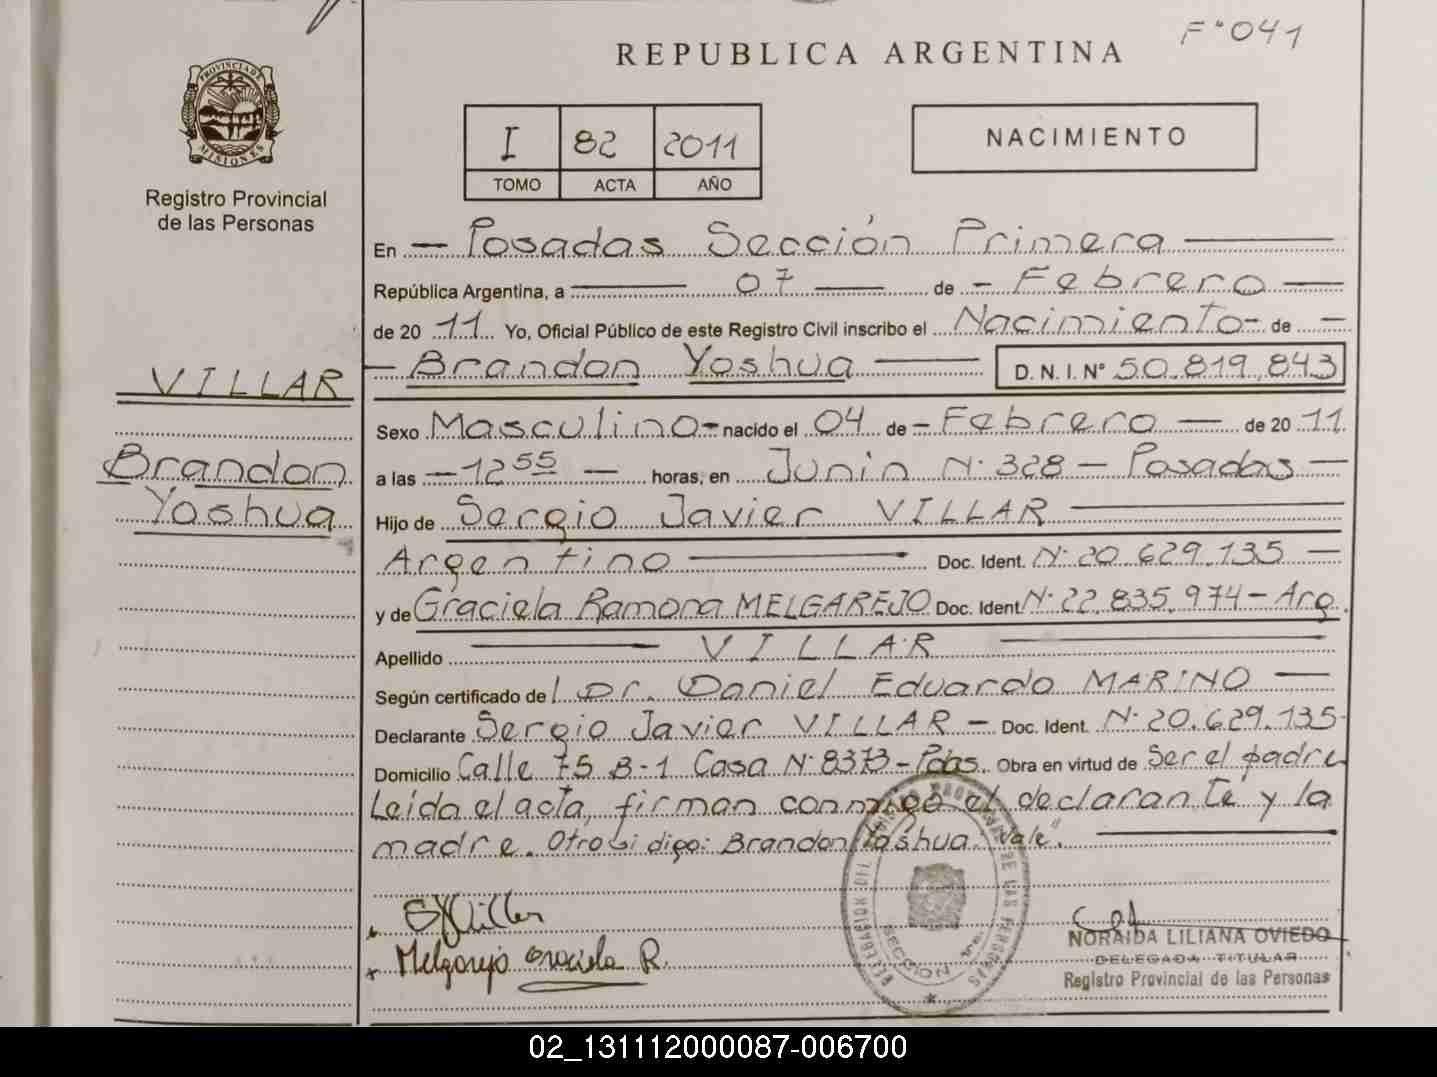 F° 041
REPUBLICA ARGENTINA
PROVINCIA DE
MISIONES
Registro Provincial
de las Personas
I 82 2011
TOMO ACTA AÑO
NACIMIENTO
En — Posadas Sección Primera —
República Argentina, a — 07 — de — Febrero —
de 20 11 Yo, Oficial Público de este Registro Civil inscribo el Nacimiento — de —
— Brandon Yoshua — D. N. I. N° 50.819.843
VILLAR
Brandon
Yoshua
Sexo Masculino — nacido el 04 de — Febrero — de 20 11
a las — 12 55 — horas, en Junin N° 328 — Posadas —
Hijo de Sergio Javier VILLAR —
Argentino — Doc. Ident. N° 20.629.135 —
y de Graciela Ramona MELGAREJO Doc. Ident N° 22.835.974 — Arg.
Apellido — VILLAR —
Según certificado del Dr. Daniel Eduardo MARINO —
Declarante Sergio Javier VILLAR — Doc. Ident. N° 20.629.135-
Domicilio Calle 75 B-1 Casa N° 8373 — Pdas. Obra en virtud de Ser el padre
Leida el acta, firman conmigo el declarante y la
madre. Otro si digo: Brandon Yoshua "Vale". —
Melgarejo Graciela R.
SECCION 1ra.
NORAIDA LILIANA OVIEDO
DELEGADA TITULAR
Registro Provincial de las Personas
02_131112000087-006700